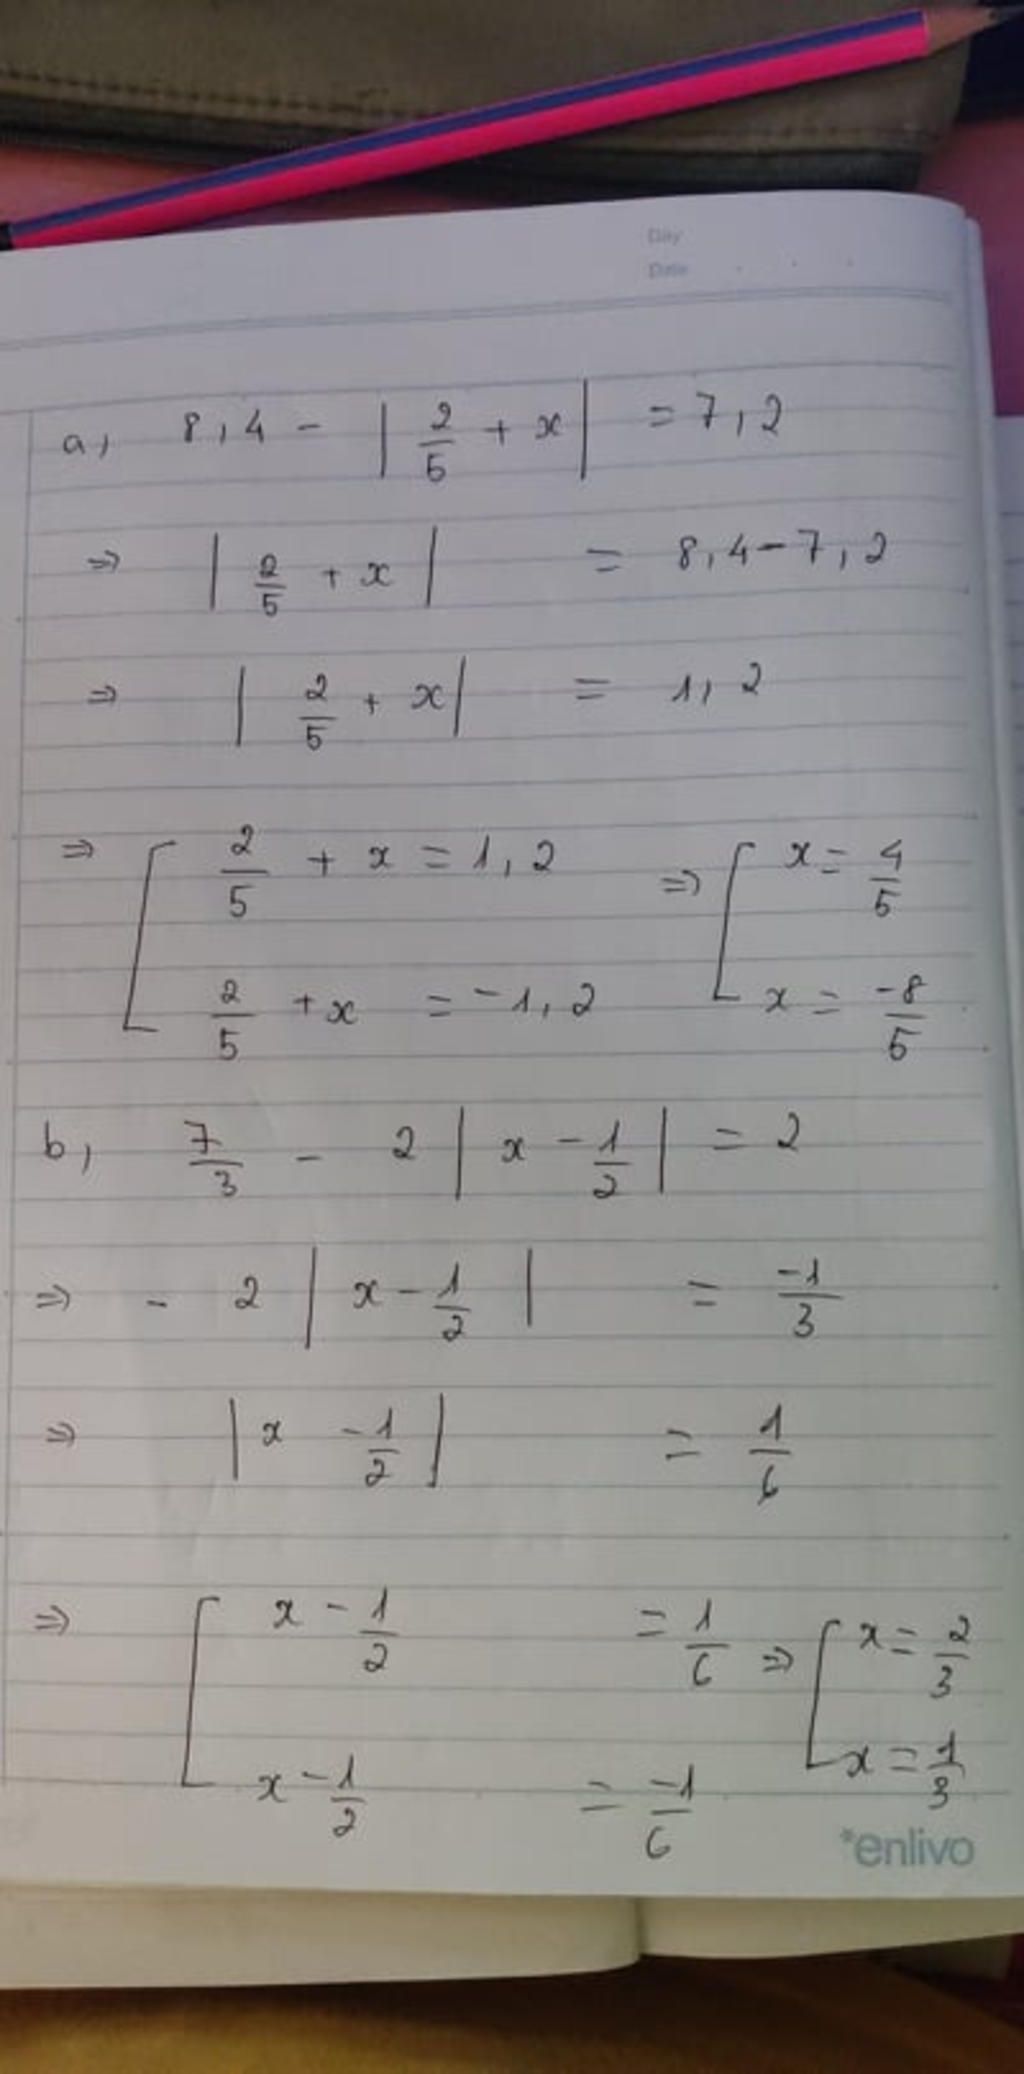 Day
Date
a, 8,4 - | 2/5 + x | = 7,2
⇒ | 2/5 + x | = 8,4 - 7,2
⇒ | 2/5 + x | = 1,2
⇒ [ 2/5 + x = 1,2 ⇒ [ x = 4/5
2/5 + x = -1,2 x = -8/5
b, 7/3 - 2 | x - 1/2 | = 2
⇒ - 2 | x - 1/2 | = -1/3
⇒ | x - 1/2 | = 1/6
⇒ [ x - 1/2 = 1/6 ⇒ [ x = 2/3
x - 1/2 = -1/6 x = 1/3
*enlivo